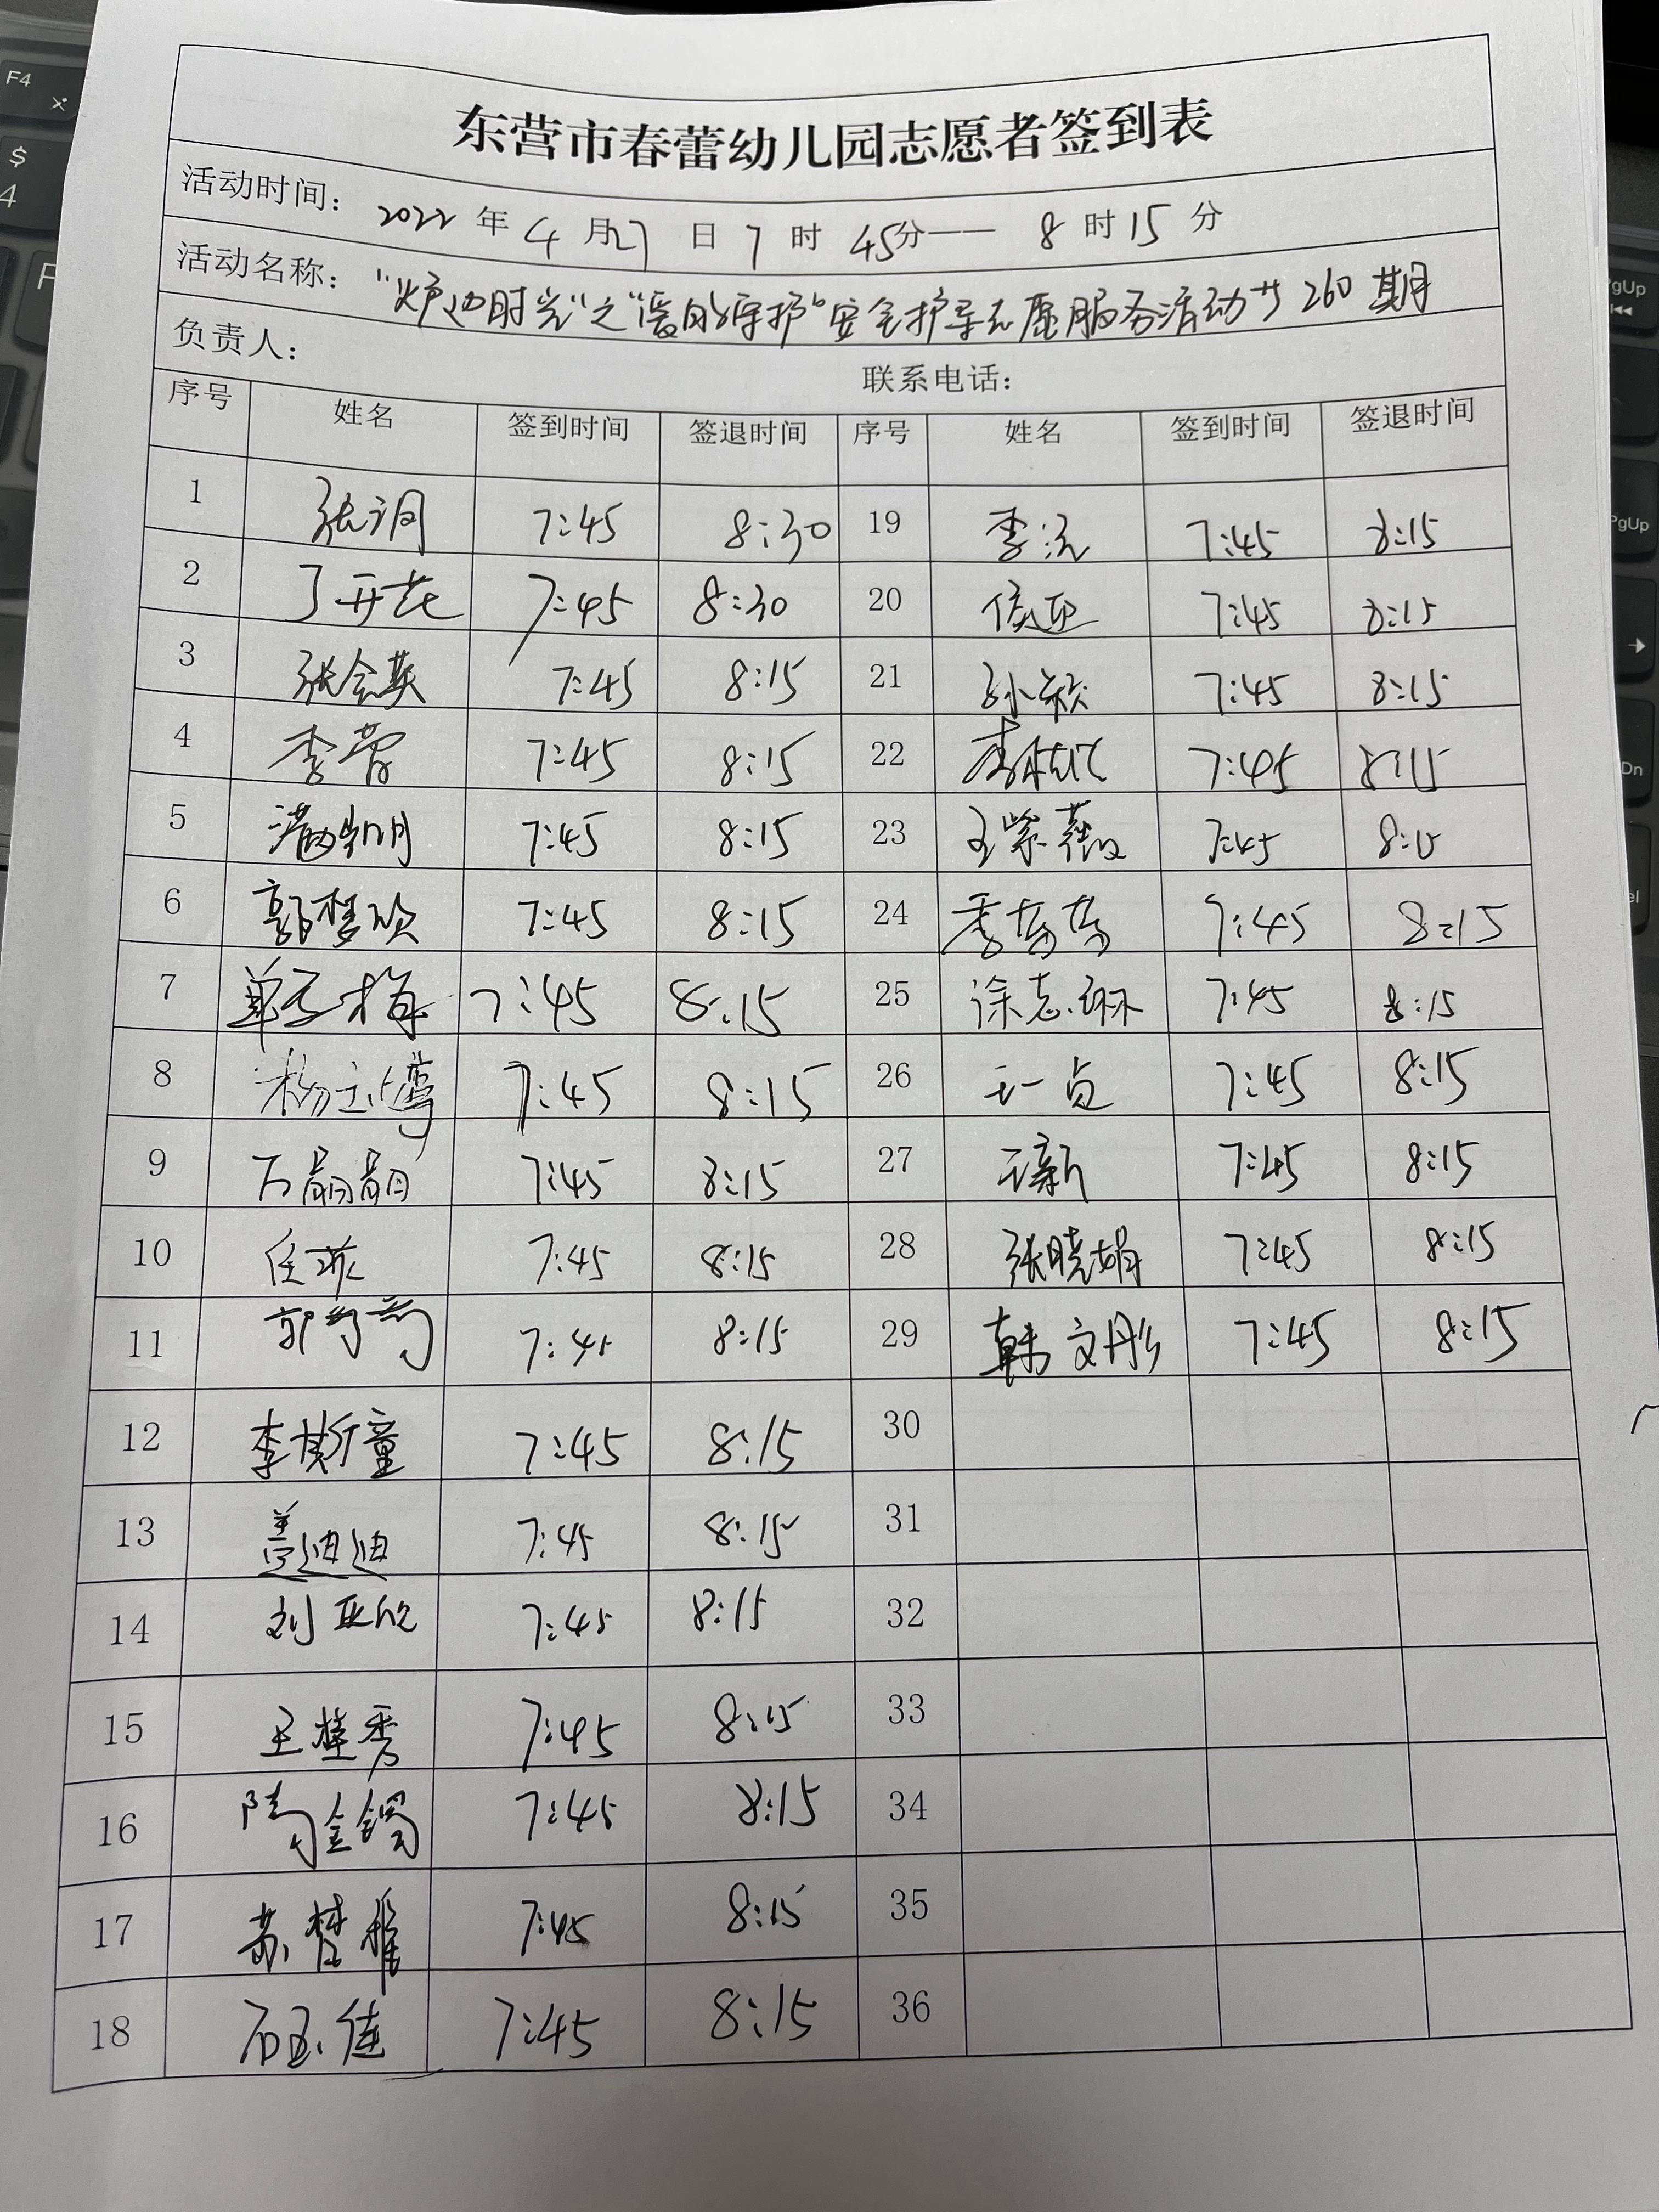 东营市春蕾幼儿园志愿者签到表
活动时间： 2022 年 4 月 27 日 7 时 45 分—— 8 时 15 分
活动名称： “炉边时光”之“爱的守护”安全护导志愿服务活动 260 期
负责人： 联系电话：
序号 姓名 签到时间 签退时间 序号 姓名 签到时间 签退时间
1 张 7:45 8:30 19 李 7:45 8:15
2 丁开花 7:45 8:30 20 7:45 8:15
3 张会英 7:45 8:15 21 孙颖 7:45 8:15
4 李 7:45 8:15 22 李 7:45 8:15
5 满朝月 7:45 8:15 23 王紫薇 7:45 8:15
6 郭梦欣 7:45 8:15 24 7:45 8:15
7 单玉梅 7:45 8:15 25 徐志琳 7:45 8:15
8 杨 7:45 8:15 26 王一贞 7:45 8:15
9 万朤朤 7:45 8:15 27 王新 7:45 8:15
10 任 7:45 8:15 28 张晓娟 7:45 8:15
11 7:45 8:15 29 韩文彤 7:45 8:15
12 李斯童 7:45 8:15 30
13 盖迪迪 7:45 8:15 31
14 刘亚欣 7:45 8:15 32
15 王桂秀 7:45 8:15 33
16 陶金镯 7:45 8:15 34
17 苏楚雅 7:45 8:15 35
18 石玉佳 7:45 8:15 36
F4
$
4
F
PgUp
PgUp
Dn